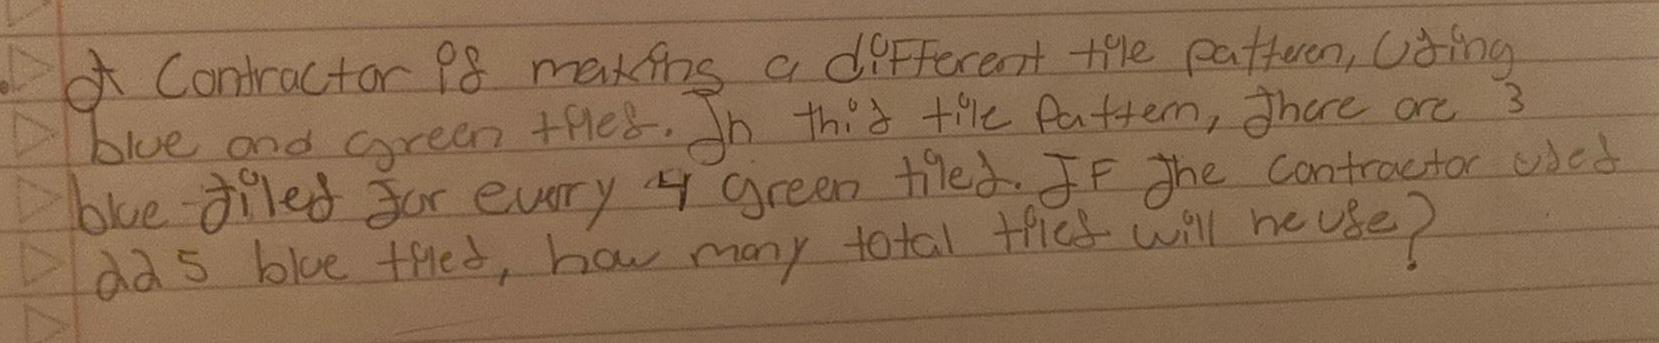 A Contractor is making a different tile pattern, Using
blue and green tiles. In this tile Pattern, there are 3
blue tiles for every 4 green tiles. IF the contractor uses
225 blue tiles, how many total tiles will he use?